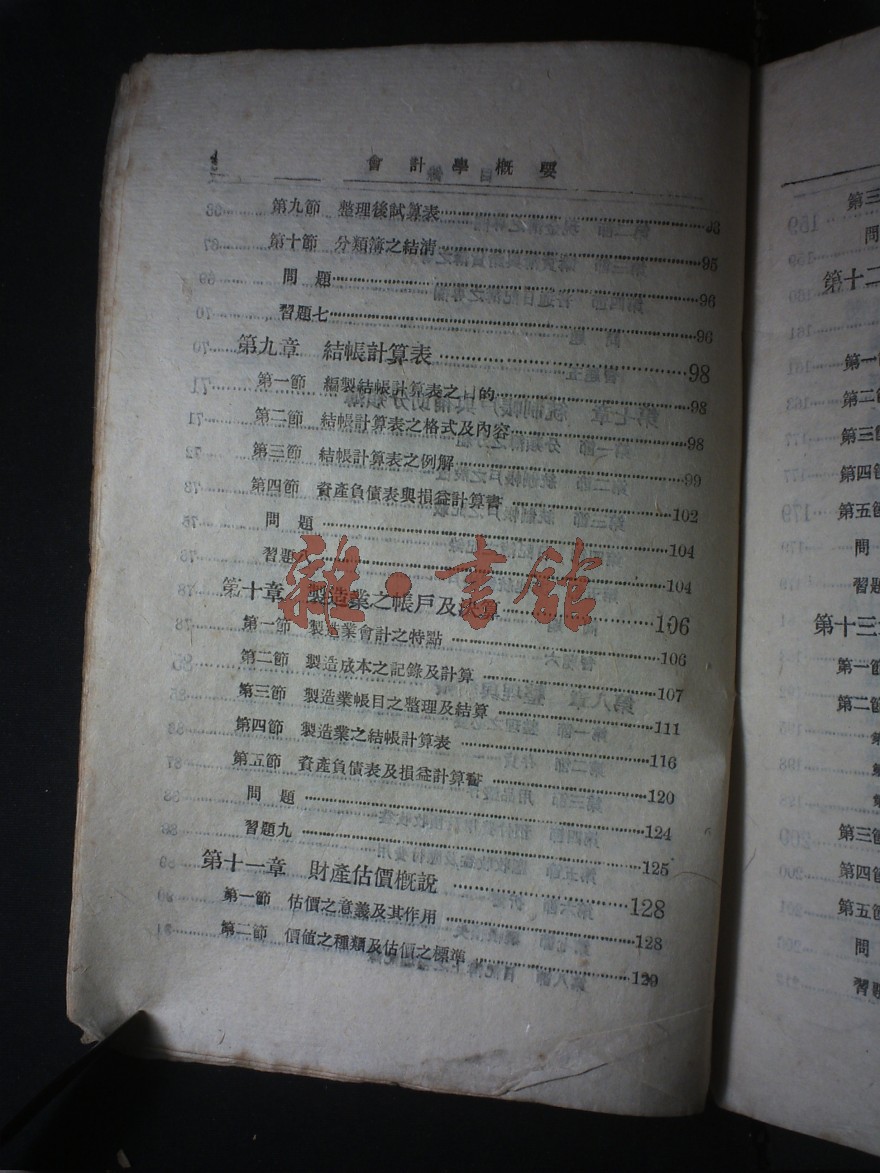 會計學概要
第九節 整理後試算表 93
第十節 分類簿之結清 95
問題 96
習題七 96
第九章 結帳計算表 98
第一節 編製結帳計算表之目的 98
第二節 結帳計算表之格式及內容 98
第三節 結帳計算表之例解 99
第四節 資產負債表與損益計算書 102
問題 104
習題八 104
第十章 製造業之帳戶及決算 106
第一節 製造業會計之特點 106
第二節 製造成本之記錄及計算 107
第三節 製造業帳目之整理及結算 111
第四節 製造業之結帳計算表 116
第五節 資產負債表及損益計算書 120
問題 124
習題九 125
第十一章 財產估價概說 128
第一節 估價之意義及其作用 128
第二節 價值之種類及估價之標準 129
雜·書館
第三
問
第十二
第一
第二
第三節
第四節
第五節
問
習題
第十三
第一節
第二節
第三節
第四節
第五節
問
習題